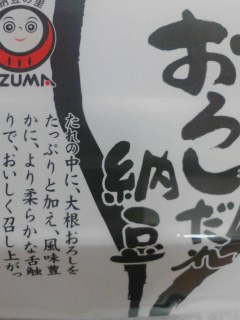 おろし
だれ
納豆
納豆の里
ZUMA
たれの中に、大根おろしを
たっぷりと加え、風味豊
かに、より柔らかな舌触
りで、おいしく召し上がっ